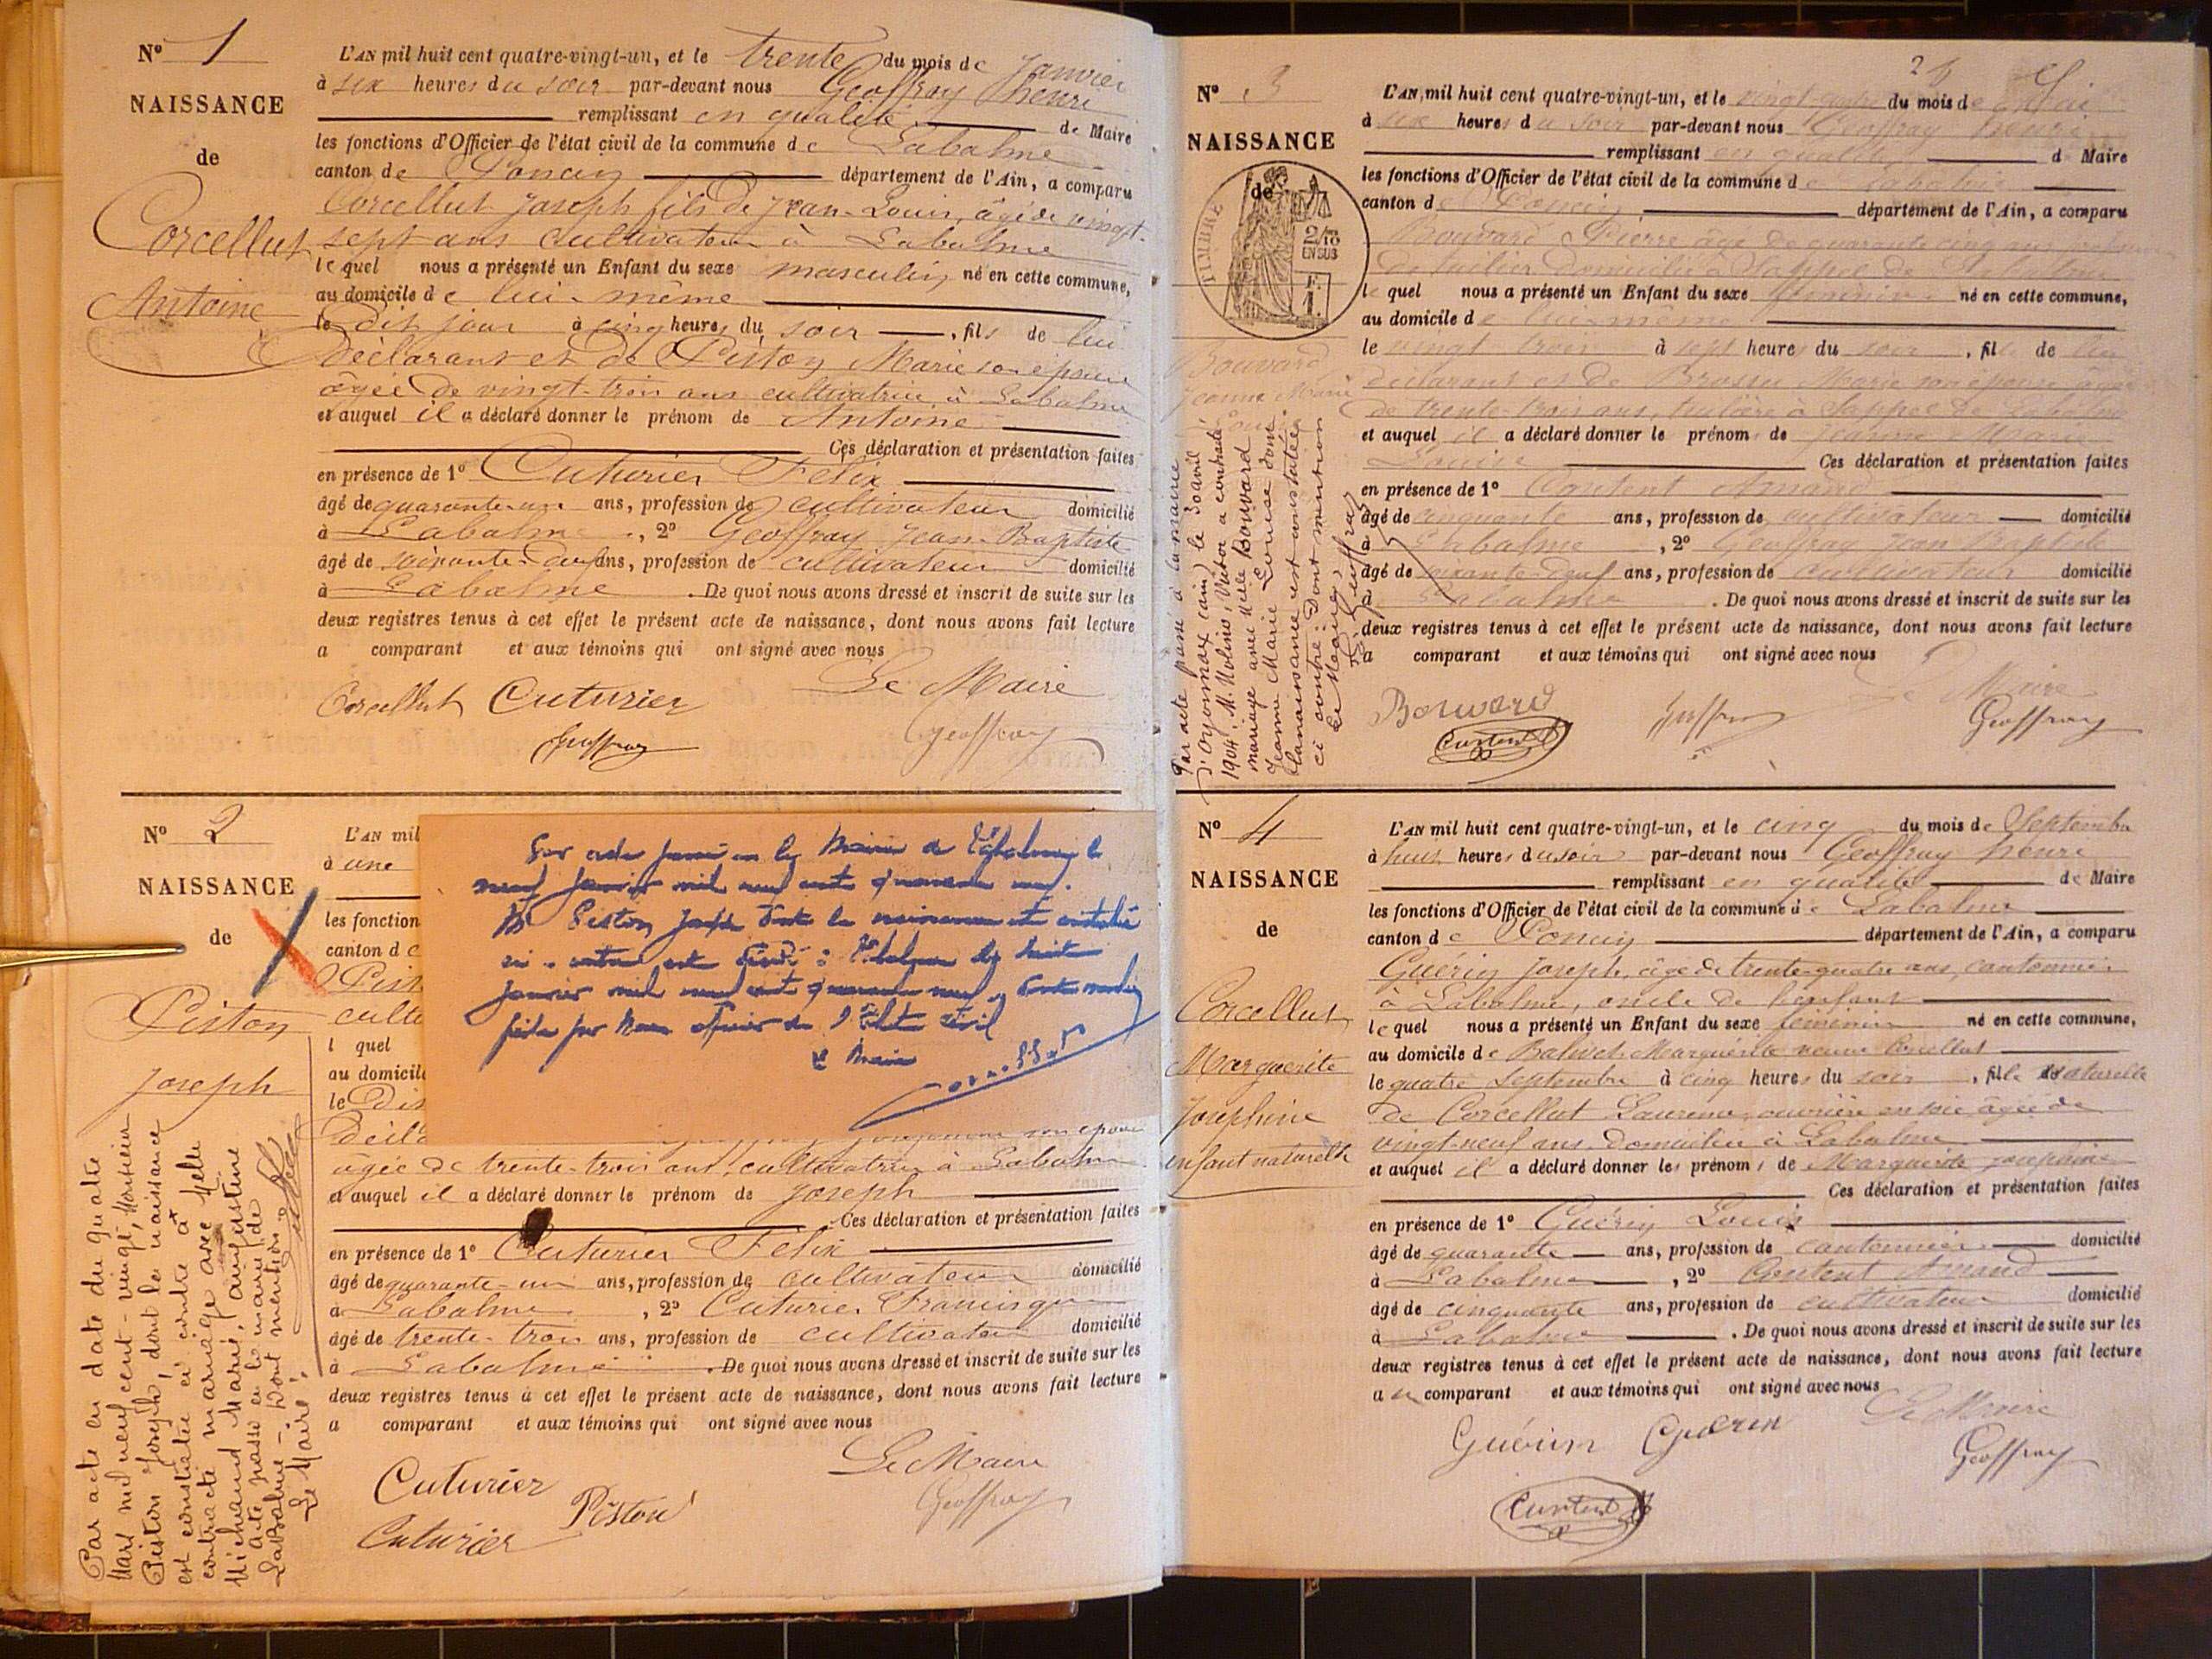 N° 1
NAISSANCE
de
Corcellut
Antoine
L'AN mil huit cent quatre-vingt-un, et le trente du mois de Janvier
à six heures du soir par-devant nous Geoffray henri
remplissant en qualité de Maire
les fonctions d'Officier de l'état civil de la commune de Labalme
canton de Poncin département de l'Ain, a comparu
Corcellut Joseph fils de Jean-Louis, âgé de vingt-
sept ans cultivateur à Labalme
lequel nous a présenté un Enfant du sexe masculin né en cette commune,
au domicile de lui-même
le dit jour à cinq heures du soir, fils de lui
déclarant et de Piston Marie son épouse
âgée de vingt-trois ans cultivatrice à Labalme
et auquel il a déclaré donner le prénom de Antoine
Ces déclaration et présentation faites
en présence de 1° Cuturier Félix
âgé de quarante-un ans, profession de cultivateur domicilié
à Labalme, 2° Geoffray Jean-Baptiste
âgé de soixante-deuf ans, profession de cultivateur domicilié
à Labalme. De quoi nous avons dressé et inscrit de suite sur les
deux registres tenus à cet effet le présent acte de naissance, dont nous avons fait lecture
a comparant et aux témoins qui ont signé avec nous
Le Maire
Corcellut Cuturier
Geoffray Geoffray
N° 2
NAISSANCE
de
Piston
Joseph
L'AN mil
à une
les fonction
canton de
Pist
culte
l quel
au domicile
le dit
décla
neuf Janvier mil neuf cent quarante neuf.
Mr Piston Joseph dont la naissance est constatée
ci-contre est décédé à Labalme le huit
Janvier mil neuf cent quarante neuf dont mention
faite par Nous officier de l'Etat Civil
Le Maire
son épouse
âgée de trente-trois ans, cultivatrice à Labalme
et auquel il a déclaré donner le prénom de Joseph
Ces déclaration et présentation faites
en présence de 1° Cuturier Félix
âgé de quarante-un ans, profession de cultivateur domicilié
à Labalme, 2° Cuturier Francisque
âgé de trente-trois ans, profession de cultivateur domicilié
à Labalme. De quoi nous avons dressé et inscrit de suite sur les
deux registres tenus à cet effet le présent acte de naissance, dont nous avons fait lecture
a comparant et aux témoins qui ont signé avec nous
Le Maire
Cuturier Piston Geoffray
Cuturier
Par acte en date du quatre
Mars mil neuf cent-vingt, Monsieur
Piston Joseph, dont la naissance
est constatée ci contre a
contracté mariage avec Melle
Michaud Marie,
acte passé en la mairie de
LaBalme - Dont mention
Le Maire:
2
N° 3
NAISSANCE
de
TIMBRE
2/10
EN SUS
F.
1.
Bouvard
Jeanne Marie
Louise
L'AN mil huit cent quatre-vingt-un, et le vingt-quatre du mois de Mai
à six heures du soir par-devant nous Geoffray henri
remplissant en qualité de Maire
les fonctions d'Officier de l'état civil de la commune de Labalme
canton de Poncin département de l'Ain, a comparu
Bouvard Pierre âgé de quarante cinq ans
de tuilier domicilié à Sappel de Labalme
lequel nous a présenté un Enfant du sexe féminin né en cette commune,
au domicile de lui-même
le vingt trois à sept heures du soir, fil de lui
déclarant et de Brossu Marie son épouse âgée
de trente-trois ans, tuilière à Sappel de Labalme
et auquel il a déclaré donner les prénoms de Jeanne Marie
Louise Ces déclaration et présentation faites
en présence de 1° Content Amand
âgé de cinquante ans, profession de cultivateur domicilié
à Labalme, 2° Geoffray Jean Baptiste
âgé de soixante-deuf ans, profession de cultivateur domicilié
à Labalme. De quoi nous avons dressé et inscrit de suite sur les
deux registres tenus à cet effet le présent acte de naissance, dont nous avons fait lecture
a comparant et aux témoins qui ont signé avec nous
Le Maire
Bouvard Geoffray Geoffray
Content
Par acte passé à la mairie
d'Oyonnax (Ain) le 30 avril
1904, M. Molino, Victor a contracté
mariage avec Melle Bouvard
Jeanne Marie Louise dont
la naissance est constatée
ci contre: Dont mention
Le Maire,
N° 4
NAISSANCE
de
Corcellut
Marguerite
Joséphine
enfant naturelle
L'AN mil huit cent quatre-vingt-un, et le cinq du mois de Septembre
à huit heures du soir par-devant nous Geoffray henri
remplissant en qualité de Maire
les fonctions d'Officier de l'état civil de la commune de Labalme
canton de Poncin département de l'Ain, a comparu
Guérin Joseph, âgé de trente-quatre ans, cantonnier
à Labalme, oncle de l'enfant
lequel nous a présenté un Enfant du sexe féminin né en cette commune,
au domicile de Balivet Marguerite veuve Corcellut
le quatre Septembre à cinq heures du soir, fille naturelle
de Corcellut Laurence, ouvrière en soie âgée de
vingt-neuf ans domiciliée à Labalme
et auquel il a déclaré donner les prénoms de Marguerite Joséphine
Ces déclaration et présentation faites
en présence de 1° Guérin Louis
âgé de quarante ans, profession de cantonnier domicilié
à Labalme, 2° Content Amand
âgé de cinquante ans, profession de cultivateur domicilié
à Labalme. De quoi nous avons dressé et inscrit de suite sur les
deux registres tenus à cet effet le présent acte de naissance, dont nous avons fait lecture
au comparant et aux témoins qui ont signé avec nous
Le Maire
Guérin Guérin Geoffray
Content